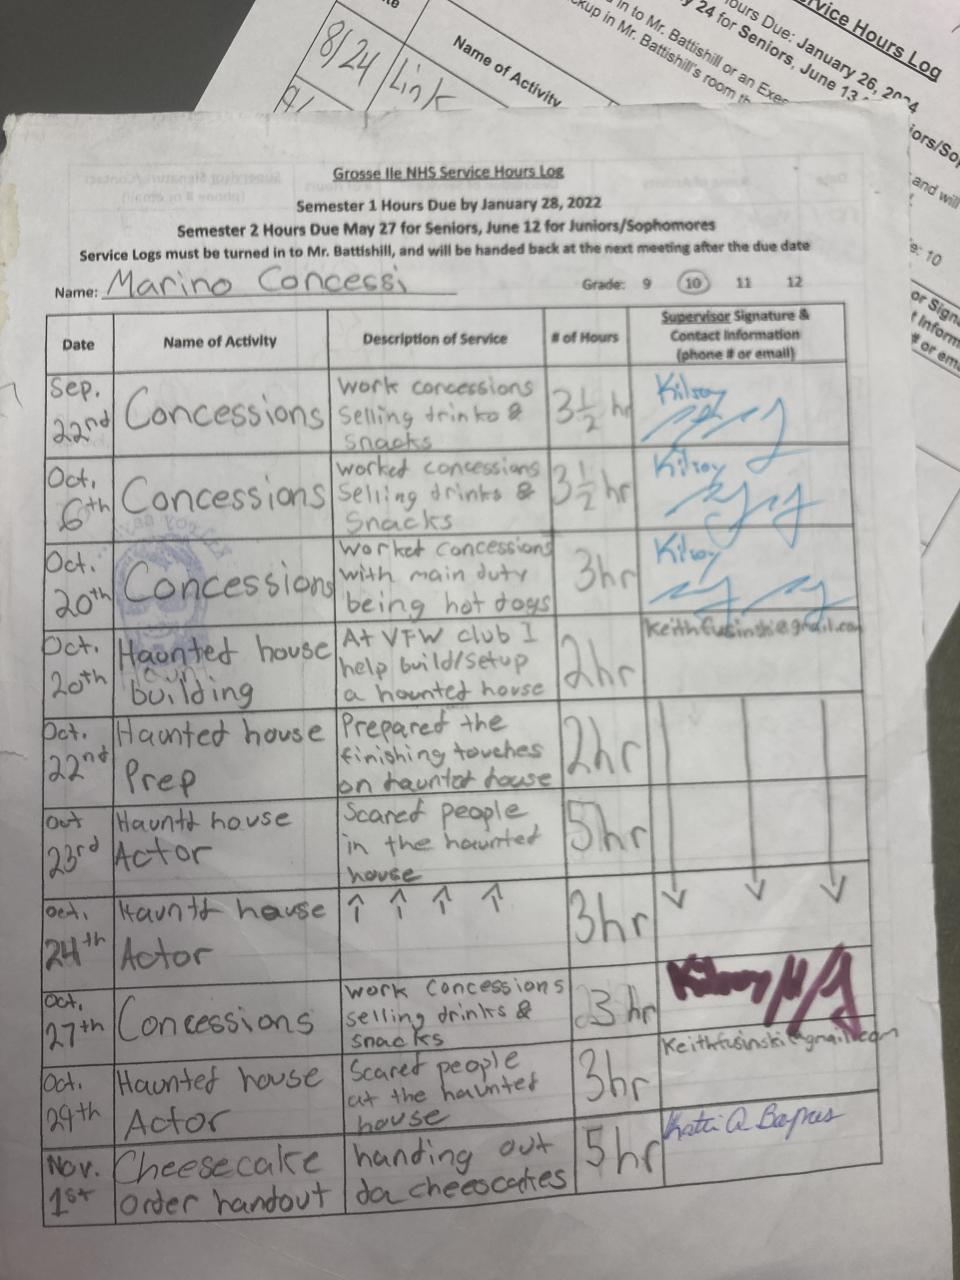 8/24
Link
Name of Activity
Service Hours Log
Hours Due: January 26, 2024
24 for Seniors, June 13
in to Mr. Battishill or an Exe
ckup in Mr. Battishill's room
Grosse Ile NHS Service Hours Log
Semester 1 Hours Due by January 28, 2022
Semester 2 Hours Due May 27 for Seniors, June 12 for Juniors/Sophomores
Service Logs must be turned in to Mr. Battishill, and will be handed back at the next meeting after the due date
Name: Marino Concessi Grade: 9 10 11 12
Date
Name of Activity
Description of Service
# of Hours
Supervisor Signature &
Contact Information
(phone # or email)
Sep.
22nd
Concessions
work concessions
selling drinks &
snacks
3 1/2 hr
Kilroy
Oct.
6th
Concessions
worked concessions
selling drinks &
snacks
3 1/2 hr
Kilroy
Oct.
20th
Concessions
worked concessions
with main duty
being hot dogs
3hr
Kilroy
Oct.
20th
Haunted house
building
At VFW club I
help build/setup
a haunted house
2hr
keithfusinski@gmail.com
Oct.
22nd
Haunted house
Prep
Prepared the
finishing touches
on haunted house
2hr
Oct
23rd
Hauntd house
Actor
Scared people
in the haunted
house
5hr
Oct.
24th
Hauntd house
Actor
↑ ↑ ↑ ↑
3hr
Oct.
27th
Concessions
work concessions
selling drinks &
snacks
3 hr
Kilroy
Oct.
29th
Haunted house
Actor
Scared people
at the haunted
house
3hr
Keithfusinski@gmail.com
Nov.
1st
Cheesecake
order handout
handing out
da cheescakes
5hr